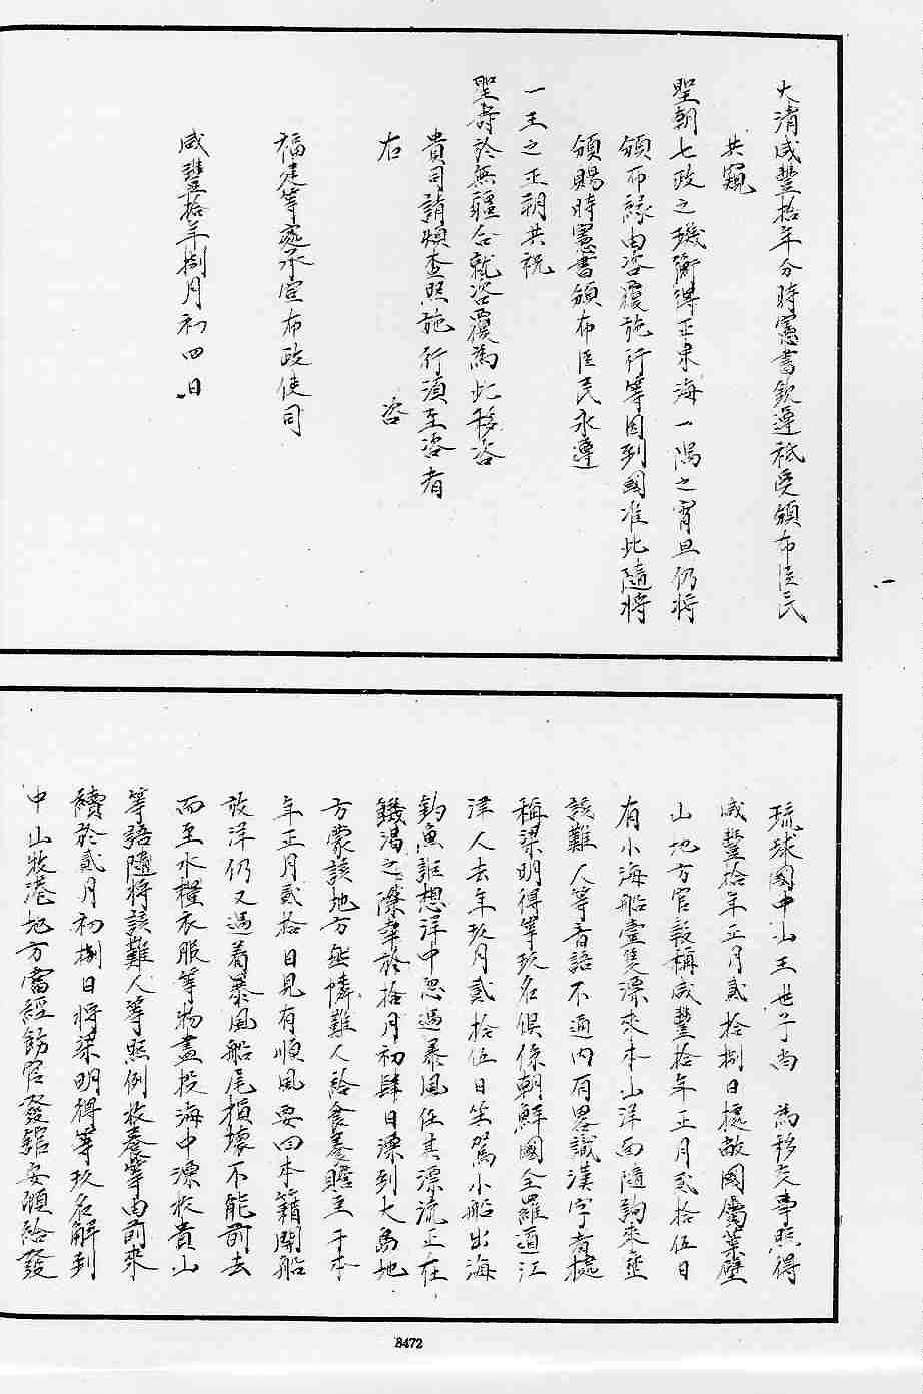 大清咸豐拾年分時憲書欽遵祗受頒布臣民
共窺
聖朝七政之璣衡得正東海一隅之宵旦仍將
頒布緣由咨覆施行等因到國准此隨將
頒賜時憲書頒布臣民永遵
一王之正朔共祝
聖壽於無疆合就咨覆為此移咨
貴司請煩查照施行湏至咨者
右　咨
福建等處承宣布政使司
咸豐拾年捌月初四日
琉球國中山王世子尚　為移咨事照得
咸豐拾年正月貳拾捌日據敝國屬葉壁
山地方官報稱咸豐拾年正月貳拾伍日
有小海船壹隻漂來本山洋面隨詢來歷
該難人等音語不通內有畧識漢字者據
稱梁明得等玖名俱係朝鮮國全羅道江
津人去年玖月貳拾伍日坐駕小船出海
釣魚詎想洋中忽遇暴風任其漂流正在
饑渴之際幸於拾月初肆日漂到大島地
方蒙該地方官憐難人給食養贍至于本
年正月貳拾日見有順風要回本籍開船
放洋仍又遇着暴風船尾損壞不能前去
而至水糧衣服等物盡投海中漂收貴山
等語隨將該難人等照例收養等由前來
續於貳月初捌日將梁明得等玖名解到
中山收港地方當經飭官發館安頓給發
8472